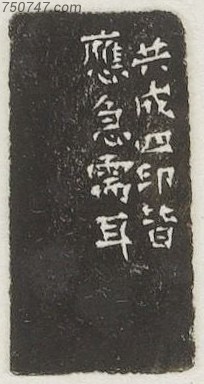 750747.com
共成四印皆
應急需耳